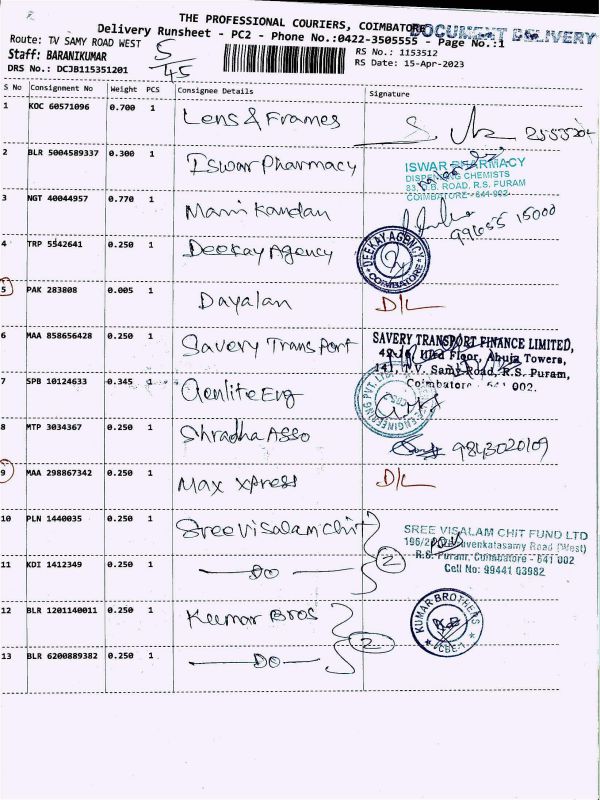 THE PROFESSIONAL COURIERS, COIMBATORE
DOCUMENT DELIVERY
Delivery Runsheet - PC2 - Phone No.:0422-3505555 - Page No.:1
Route: TV SAMY ROAD WEST
RS No.: 1153512
Staff: BARANIKUMAR
RS Date: 15-Apr-2023
DRS No.: DCJB115351201
5/45
S No Consignment No Weight PCS Consignee Details Signature
1 KOC 60571096 0.700 1 Lens & Frames
2 BLR 5004589337 0.300 1 Iswar Pharmacy
ISWAR PHARMACY
DISPENSING CHEMISTS
83, D.B. ROAD, R.S. PURAM
COIMBATORE - 641 002
3 NGT 40044957 0.770 1 Manikandan
15000
4 TRP 5542641 0.250 1 Deekay Agency
DEEKAY AGENCY
COIMBATORE
5 PAK 283808 0.005 1 Dayalan D/L
6 MAA 858656428 0.250 1 Savery Transport
SAVERY TRANSPORT FINANCE LIMITED,
Floor, Ahuja Towers,
141, T.V. Samy Road, R.S. Puram,
Coimbatore - 641 002.
7 SPB 10124633 0.345 1 Genlite Eng
ENGINEERING PVT. LTD
8 MTP 3034367 0.250 1 Shradha Asso 9843020109
9 MAA 298867342 0.250 1 Max Xpress D/L
10 PLN 1440035 0.250 1 Sree Visalam Chit
SREE VISALAM CHIT FUND LTD
Road (West)
R.S. Puram, Coimbatore - 641 002
Cell No: 99441 03982
2
11 KDI 1412349 0.250 1 — DO —
12 BLR 1201140011 0.250 1 Kumar Bros
KUMAR BROTHERS
CBE-1
2
13 BLR 6200889382 0.250 1 — DO —